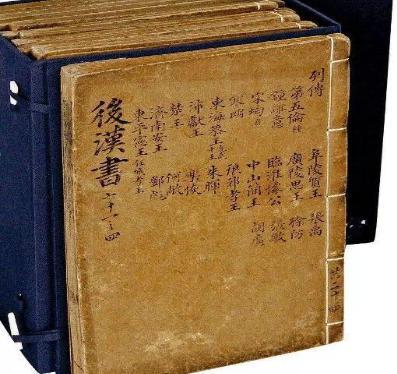 列傳
第五倫種
鍾離意
宋均意
寒朗
東海恭王
沛獻王
楚王
濟南安王
東平憲王任城孝王
阜陵質王
廣陵思王
臨淮懷公
中山簡王
琅邪孝王
朱暉
樂恢
何敞
鄧彪
張禹
徐防
張敏
胡廣
後漢書